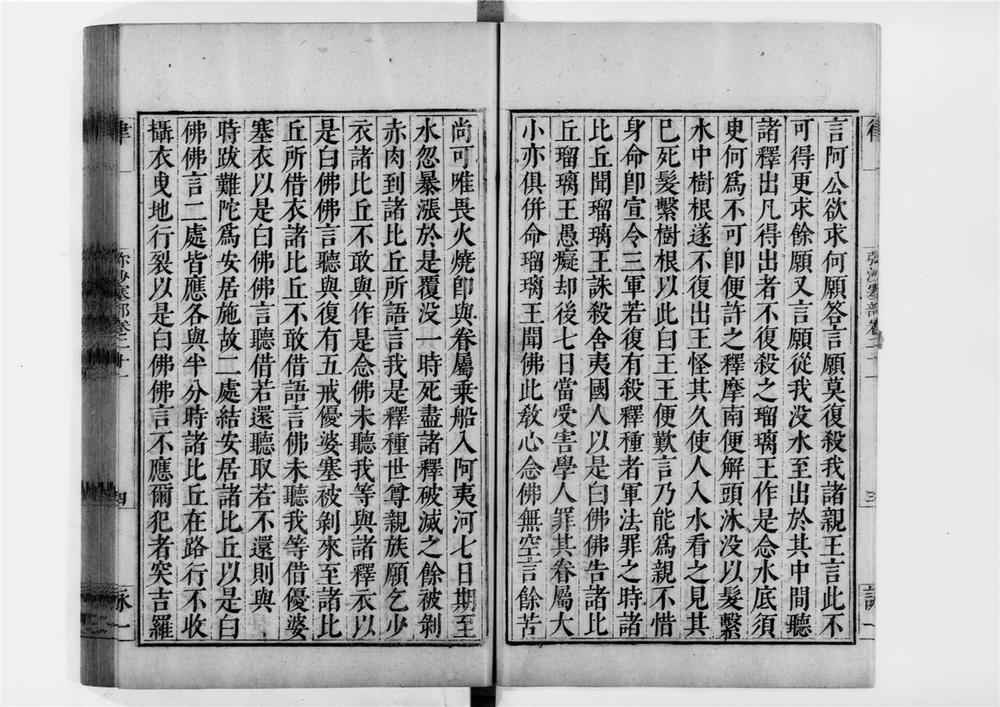 言阿公欲求何願答言願莫復殺我諸親王言此不
可得更求餘願又言願從我没水至出於其中間聽
諸釋出凡得出者不復殺之瑠璃王作是念水底須
㬰何爲不可卽便許之釋摩南便解頭沐没以髮繫
水中樹根遂不復出王怪其久使人入水看之見其
已死髮繫樹根以此白王王便歎言乃能爲親不惜
身命卽宣令三軍若復有殺釋種者軍法罪之時諸
比丘聞瑠璃王誅殺舍夷國人以是白佛佛告諸比
丘瑠璃王愚癡却後七日當受害學人罪其眷屬大
小亦俱併命瑠璃王聞佛此敎心念佛無空言餘苦
尚可唯畏火燒卽與眷屬乘船入阿夷河七日期至
水忽暴漲於是覆没一時死盡諸釋破滅之餘被剝
赤肉到諸比丘所語言我是釋種世尊親族願乞少
衣諸比丘不敢與作是念佛未聽我等與諸釋衣以
是白佛佛言聽與復有五戒優婆塞被剝來至諸比
丘所借衣諸比丘不敢借語言佛未聽我等借優婆
塞衣以是白佛佛言聽借若還聽取若不還則與
時跋難陀爲安居施故二處結安居諸比丘以是白
佛佛言二處皆應各與半分時諸比丘在路行不收
攝衣曳地行裂以是白佛佛言不應爾犯者突吉羅